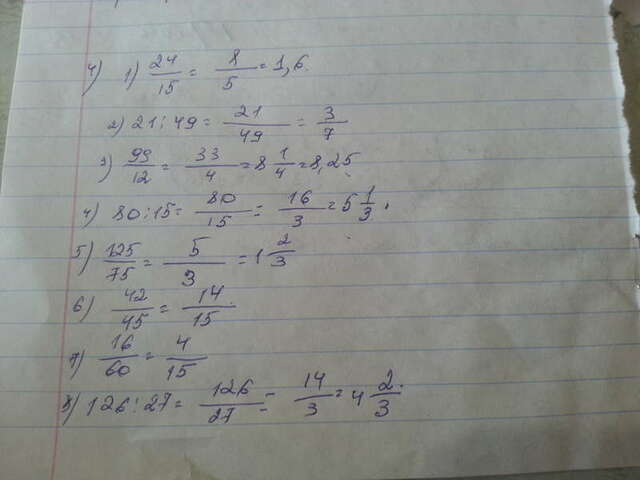 4) 1) 24/15 = 8/5 = 1,6.
2) 21:49 = 21/49 = 3/7
3) 99/12 = 33/4 = 8 1/4 = 8,25
4) 80:15 = 80/15 = 16/3 = 5 1/3.
5) 125/75 = 5/3 = 1 2/3
6) 42/45 = 14/15
7) 16/60 = 4/15
8) 126:27 = 126/27 = 14/3 = 4 2/3.